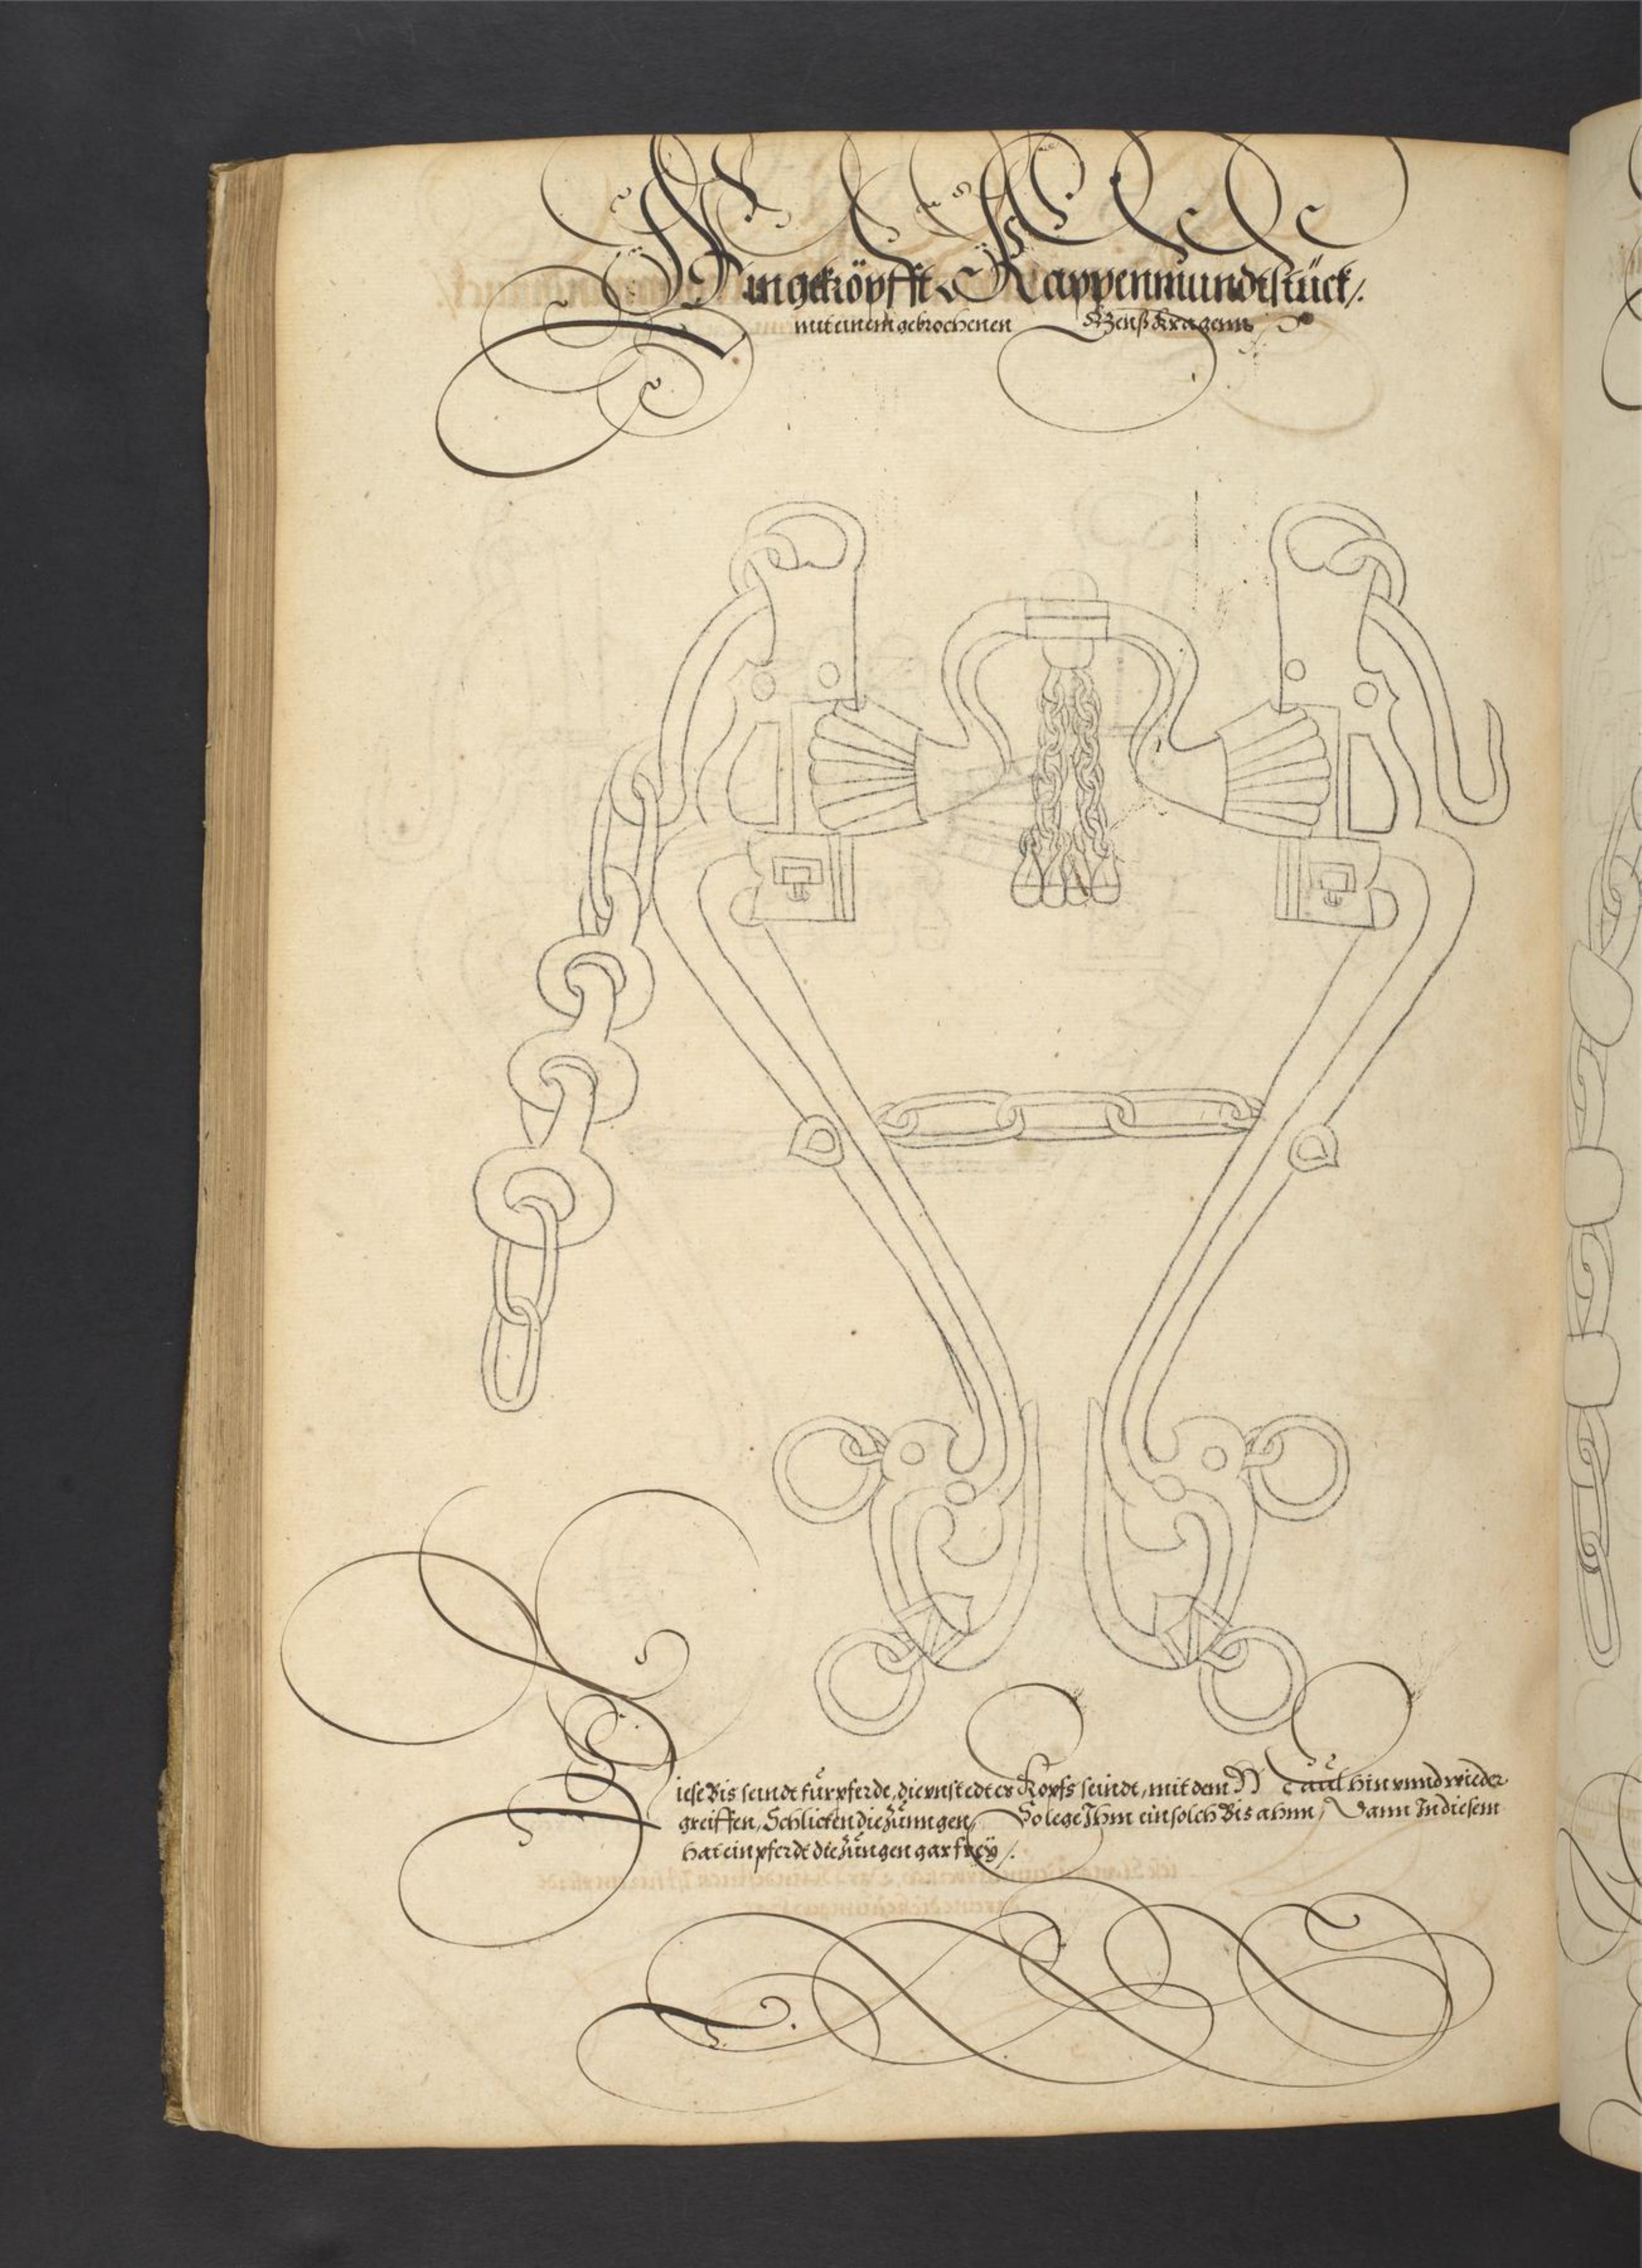 Ein geköpfft Kappenmundtstück/.
mit einem gebrochenen Genßkragenn
Diese Bis seindt für pferde, die vnstedtes Kopfs seindt, mit dem Maul hin vnnd wieder
greiffen, Schlicken die Zünngen, So lege Ihm ein solch Bis ahnn, Dann In diesem
hat ein pferdt die Züngen gar freÿ/.